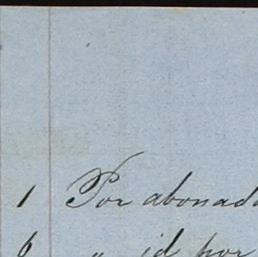 1 Por abonado
6 " id por